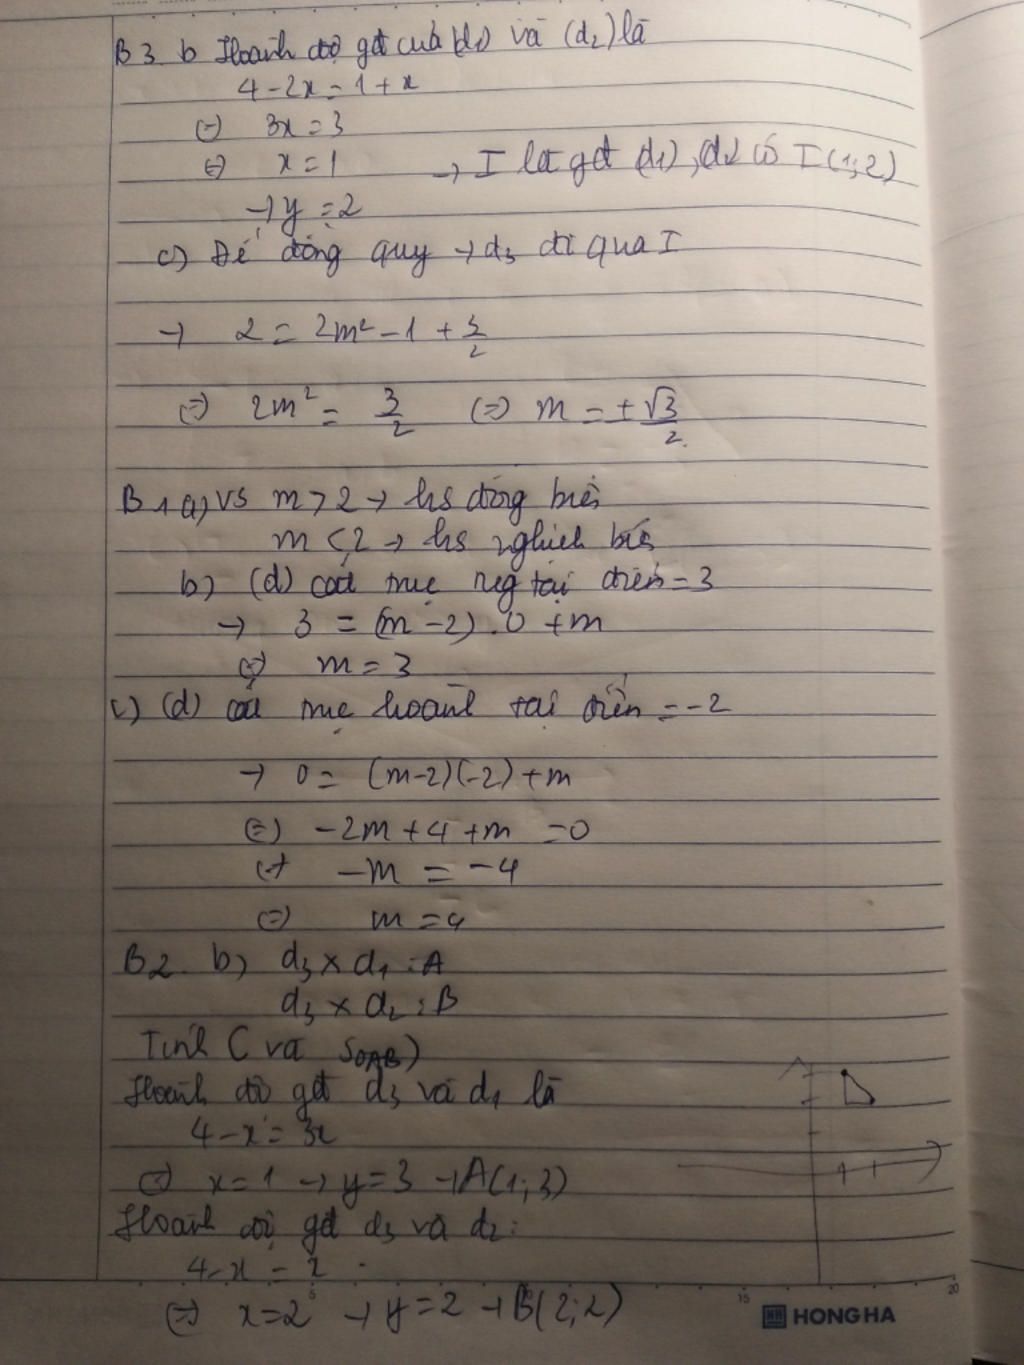 B3 b Hoành độ gđ của (d1) và (d2) là
4 - 2x = 1 + x
(=) 3x = 3
(=) x = 1 → I là gđ (d1), d2 có I(1;2)
→ y = 2
c) Để đồng quy → d3 đi qua I
→ 2 = 2m² - 1 + 3/2
(=) 2m² = 3/2 (=) m = ± √3/2.
B1 a) Vs m > 2 → hs đồng biến
m < 2 → hs nghịch biến
b) (d) cắt trục tại điểm = 3
→ 3 = (m - 2) . 0 + m
(=) m = 3
c) (d) cắt trục hoành tại điểm = -2
→ 0 = (m - 2)(-2) + m
(=) -2m + 4 + m = 0
(=) -m = -4
(=) m = 4
B2 b) d3 x d1 : A
d3 x d2 : B
Tính C và SOAB)
Hoành độ gđ d3 và d1 là
4 - x = 3x
(=) x = 1 → y = 3 → A(1;3)
Hoành độ gđ d3 và d2 :
4 - x = x
(=) x = 2 → y = 2 → B(2;2)
5 15 20
HH HONG HA